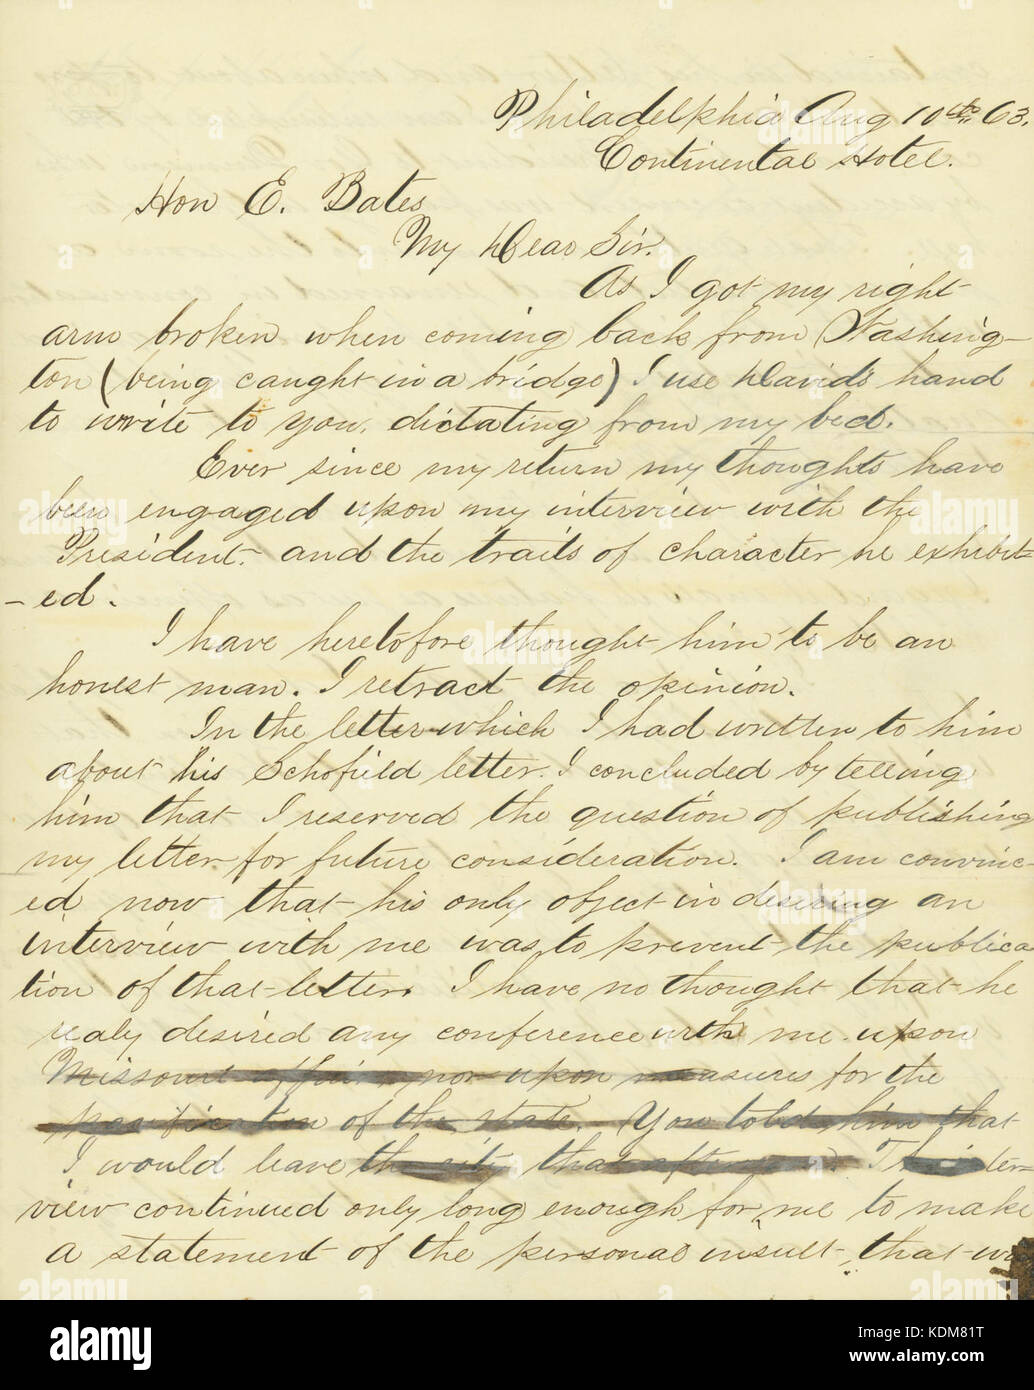 Philadelphia Aug 10th 63.
Continental Hotel.
Hon E. Bates
My Dear Sir.
As I got my right
arm broken when coming back from Washing-
ton (being caught in a bridge) I use David's hand
to write to you, dictating from my bed.
Ever since my return my thoughts have
been engaged upon my interview with the
President. and the traits of character he exhibit-
-ed.
I have heretofore thought him to be an
honest man. I retract the opinion.
In the letter which I had written to him
about his Schofield letter. I concluded by telling
him that I reserved the question of publishing
my letter for future consideration. I am convinc-
ed now that his only object in desiring an
interview with me was to prevent the publica
tion of that letter. I have no thought that he
realy desired any conference with me upon
Missouri affairs nor upon measures for the
pacification of the state. You told him that
I would leave the city that afternoon. The inter-
view continued only long enough for me to make
a statement of the personal insult, that was
alamy
Image ID: KDM81T
www.alamy.com